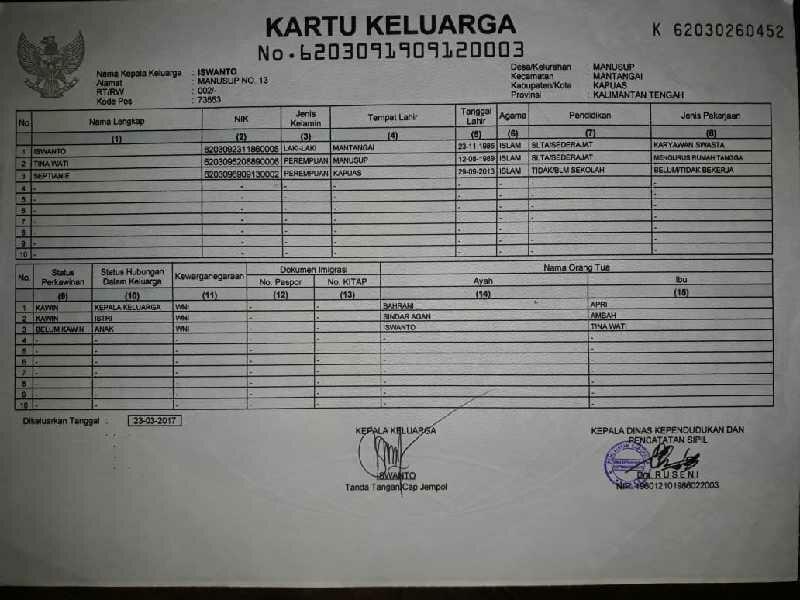 KARTU KELUARGA
No.6203091909120003
K 62030260452
Nama Kepala Keluarga : ISWANTO
Alamat : MANUSUP NO. 13
RT/RW : 002/-
Kode Pos :
Desa/Kelurahan : MANUSUP
Kecamatan : MANTANGAI
Kabupaten/Kota : KAPUAS
Provinsi : KALIMANTAN TENGAH
No Nama Lengkap NIK Jenis Kelamin Tempat Lahir Tanggal Lahir Agama Pendidikan Jenis Pekerjaan
(1) (2) (3) (4) (5) (6) (7) (8)
1 ISWANTO LAKI-LAKI MANTANGAI ISLAM SLTA/SEDERAJAT KARYAWAN SWASTA
2 TINA WATI PEREMPUAN MANUSUP ISLAM SLTA/SEDERAJAT MENGURUS RUMAH TANGGA
3 SEPTIANIE PEREMPUAN KAPUAS 29-09-2013 ISLAM TIDAK/BLM SEKOLAH BELUM/TIDAK BEKERJA
4 - - - - - - - -
5 - - - - - - - -
6 - - - - - - - -
7 - - - - - - - -
8 - - - - - - - -
9 - - - - - - - -
10 - - - - - - - -
No. Status Perkawinan Status Hubungan Dalam Keluarga Kewarganegaraan Dokumen Imigrasi Nama Orang Tua
No. Paspor No. KITAP Ayah Ibu
(9) (10) (11) (12) (13) (14) (15)
1 KAWIN KEPALA KELUARGA WNI - - BAHRANI APRI
2 KAWIN ISTRI WNI - - SINDAR AGAN AMBAH
3 BELUM KAWIN ANAK WNI - - ISWANTO TINA WATI
4 - - - - - - -
5 - - - - - - -
6 - - - - - - -
7 - - - - - - -
8 - - - - - - -
9 - - - - - - -
10 - - - - - - -
Dikeluarkan Tanggal : 23-03-2017
KEPALA KELUARGA
ISWANTO
Tanda Tangan/Cap Jempol
KEPALA DINAS KEPENDUDUKAN DAN
PENCATATAN SIPIL
RUSENI
NIP.